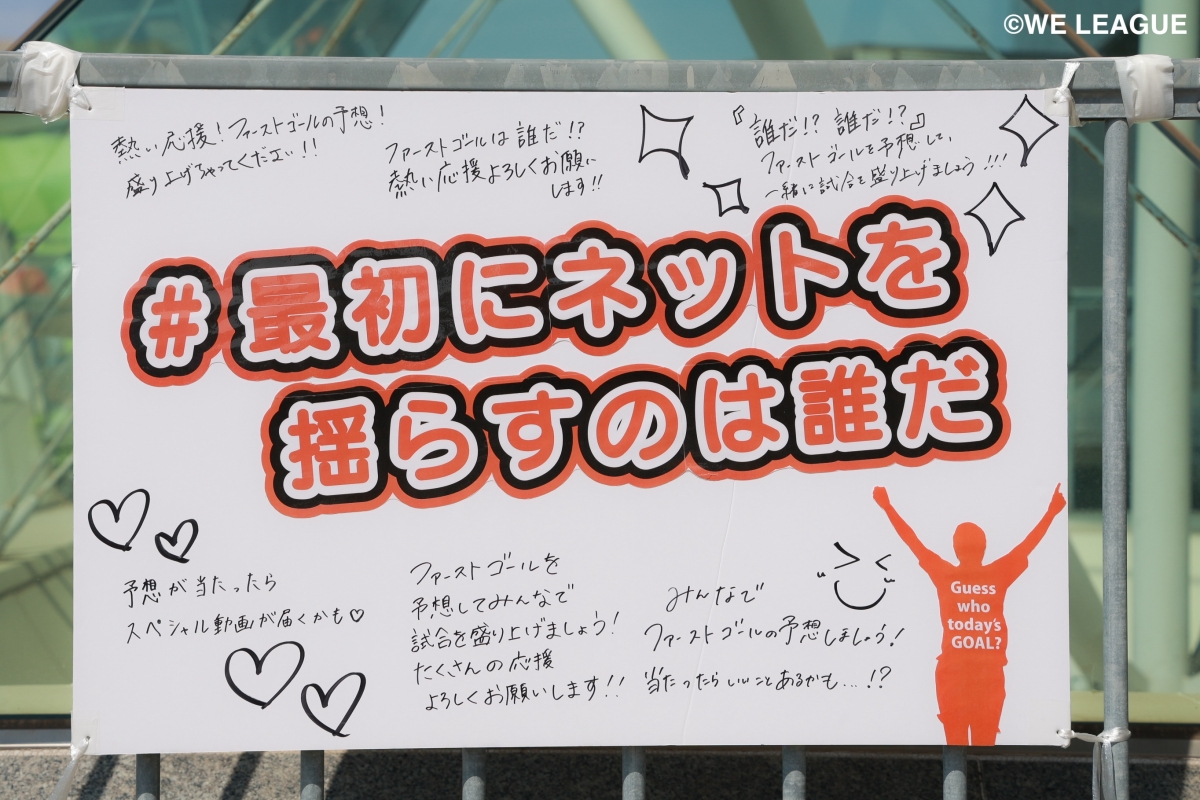 ©WE LEAGUE
熱い応援!ファーストゴールの予想!
盛り上げちゃってくだエい!!
ファーストゴールは誰だ!?
熱い応援よろしくお願い
します!!
『誰だ!? 誰だ!?』
ファーストゴールを予想して、
一緒に試合を盛り上げましょう!!!
#最初にネットを
揺らすのは誰だ
予想が当たったら
スペシャル動画が届くかも♡
ファーストゴールを
予想してみんなで
試合を盛り上げましょう!
たくさんの応援
よろしくお願いします!!
みんなで
ファーストゴールの予想しましょう!
当たったらいいことあるかも…!?
Guess
who
today's
GOAL?